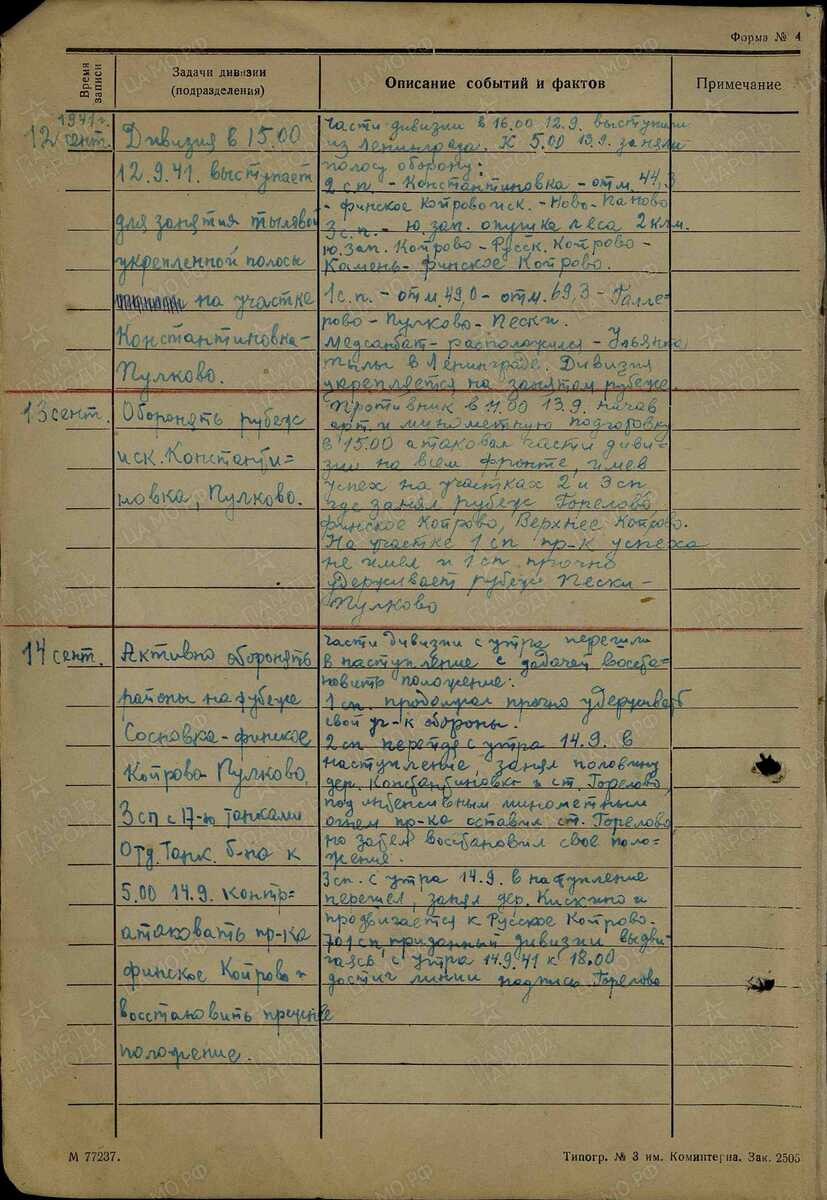 Форма № 4
Время записи
Задачи дивизии
(подразделения)
Описание событий и фактов
Примечание
1941 г.
12 сент.
Дивизия в 15.00
12.9.41. выступает
для занятия тыловой
укрепленной полосы
на участке
Константиновка-
Пулково.
Части дивизии в 16.00 12.9. выступили
из Ленинграда. К 5.00 13.9. заняли
полосу обороны:
2 сп. - Константиновка - отм. 44,3
- финское Койрово иск. - Ново-Паново
3 с.п. - ю.зап. опушка леса 2 клм.
ю.зап. Койрово - Русск. Койрово -
Камень - финское Койрово.
1 с.п. - отм. 49,0 - отм. 69,3 - Галле-
рово - Пулково - Пески.
Медсанбат - расположился - Ульянка
тылы в Ленинграде. Дивизия
укрепляется на занятом рубеже.
13 сент.
Оборонять рубеж
иск. Константи=
новка, Пулково.
Противник в 11.00 13.9. начав
арт. и минометную подготовку
в 15.00 атаковал части диви-
зии на всем фронте, имев
успех на участках 2 и 3 сп
где занял рубеж Горелово,
финское Койрово, Верхнее Койрово.
На участке 1 сп пр-к успеха
не имел и 1 сп прочно
удерживает рубеж Пески -
Пулково
14 сент.
Активно оборонять
районы на рубеже
Сосновка - финское
Койрово - Пулково.
3 сп с 17-ю танками
Отд. Танк. б-на к
5.00 14.9. контр=
атаковать пр-ка
финское Койрово и
восстановить прежнее
положение.
Части дивизии с утра перешли
в наступление с задачей восста-
новить положение:
1 сп. продолжал прочно удерживать
свой уч-к обороны.
2 сп перейдя с утра 14.9. в
наступление, занял половину
дер. Константиновка и ст. Горелово,
под интенсивным минометным
огнем пр-ка оставил ст. Горелово
но затем восстановил свое поло-
жение.
3 сп. с утра 14.9. в наступление
перешел, занял дер. Кискино и
продвигается к Русское Койрово.
701 сп, приданный дивизии выдви-
гаясь с утра 14.9.41 к 18.00
достиг линии подпись Горелово
М 77237.
Типогр. № 3 им. Коминтерна. Зак. 2505